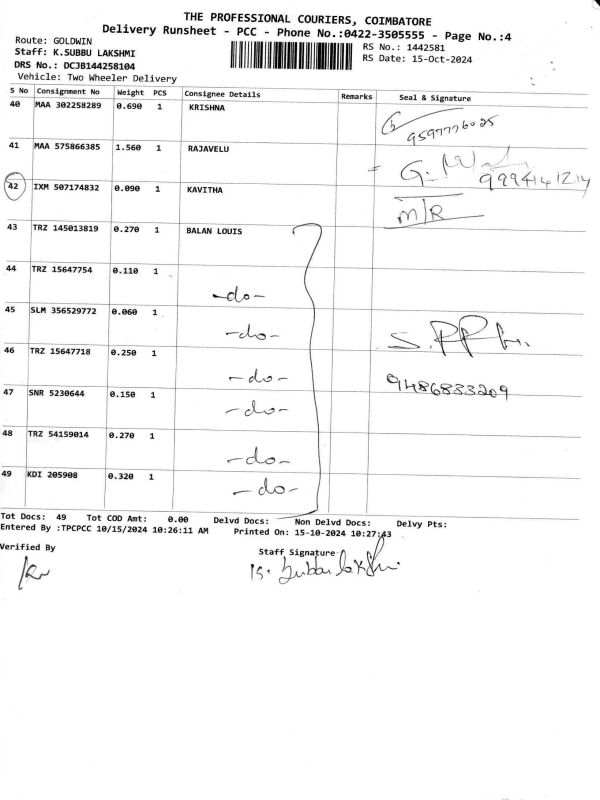 THE PROFESSIONAL COURIERS, COIMBATORE
Delivery Runsheet - PCC - Phone No.:0422-3505555 - Page No.:4
Route: GOLDWIN
RS No.: 1442581
Staff: K.SUBBU LAKSHMI
RS Date: 15-Oct-2024
DRS No.: DCJB144258104
Vehicle: Two Wheeler Delivery
S No Consignment No Weight PCS Consignee Details Remarks Seal & Signature
40 MAA 302258289 0.690 1 KRISHNA
9597776025
41 MAA 575866385 1.560 1 RAJAVELU
9994141214
42 IXM 507174832 0.090 1 KAVITHA
M/R
43 TRZ 145013819 0.270 1 BALAN LOUIS
44 TRZ 15647754 0.110 1
-do-
45 SLM 356529772 0.060 1
-do-
46 TRZ 15647718 0.250 1
-do-
9486833209
47 SNR 5230644 0.150 1
-do-
48 TRZ 54159014 0.270 1
-do-
49 KDI 205908 0.320 1
-do-
Tot Docs: 49 Tot COD Amt: 0.00 Delvd Docs: Non Delvd Docs: Delvy Pts:
Entered By :TPCPCC 10/15/2024 10:26:11 AM Printed On: 15-10-2024 10:27:43
Verified By
Staff Signature
K. Subbu lakshmi